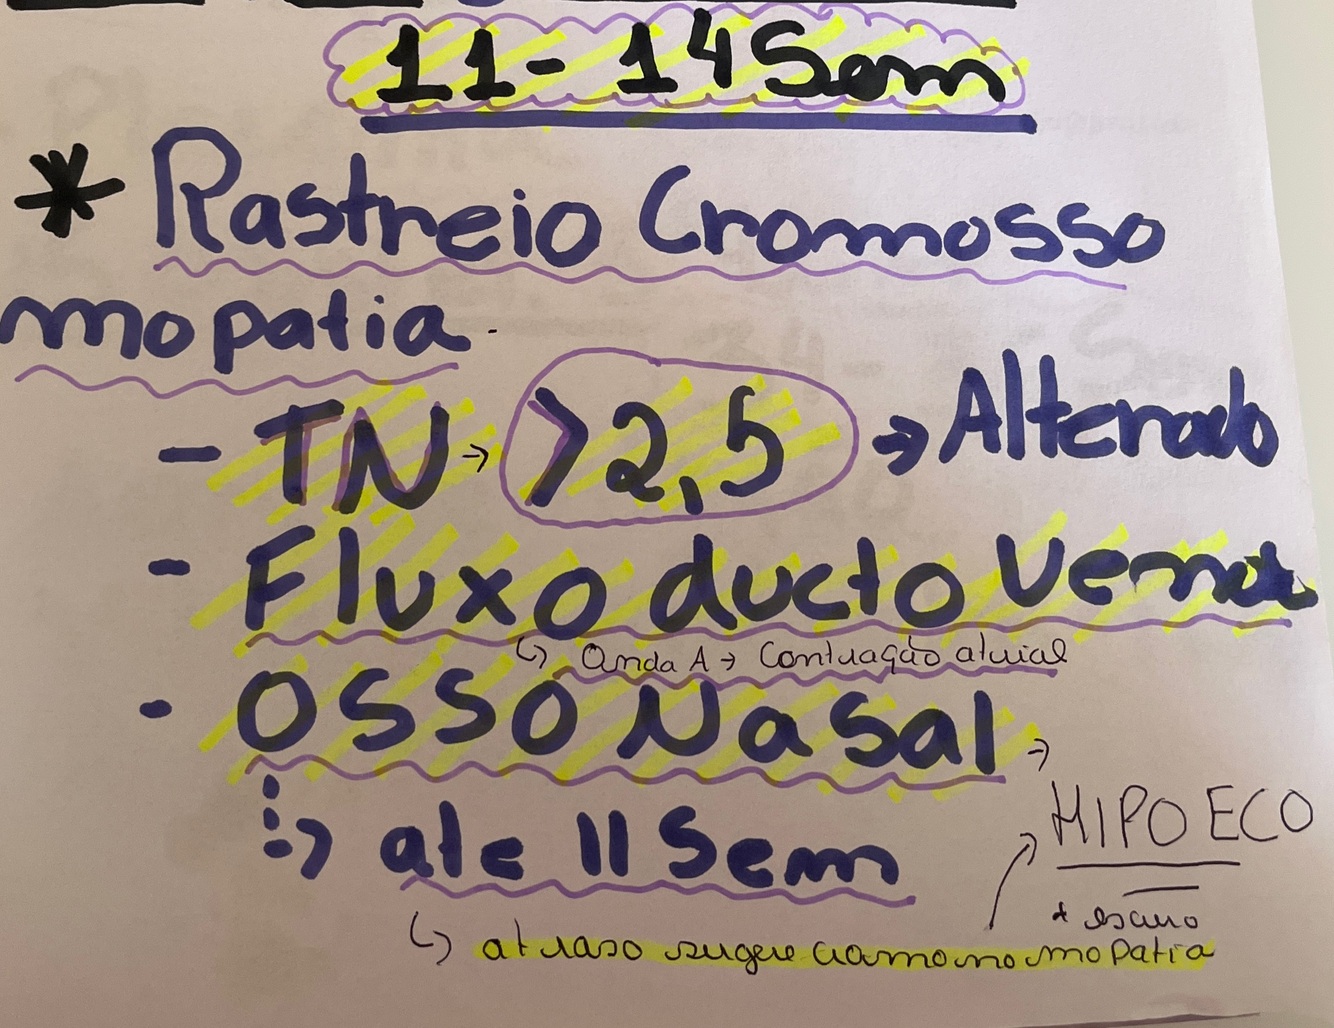 11 - 14 Sem
* Rastreio Cromosso
mopatia.
- TN → >2,5 → Alterado
- Fluxo ducto Venoso
↳ Onda A → Contração atrial
- Osso Nasal →
HIPO ECO
+ escuro
⋮→ até 11 Sem
↳ atraso sugere